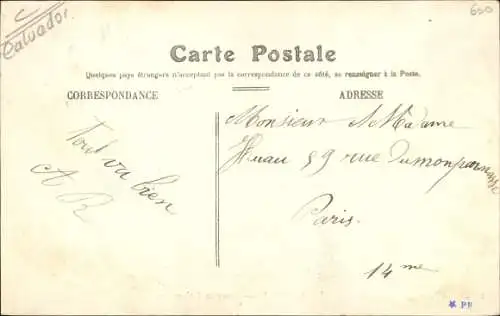 C
Calvados.
600
Carte Postale
Quelques pays étrangers n'acceptant pas la correspondance de ce côté, se renseigner à la Poste.
CORRESPONDANCE
ADRESSE
Tout
va bien
A R
Monsieur & Madame
Huau 59 rue Dumonparnasse
Paris.
14me
* PP